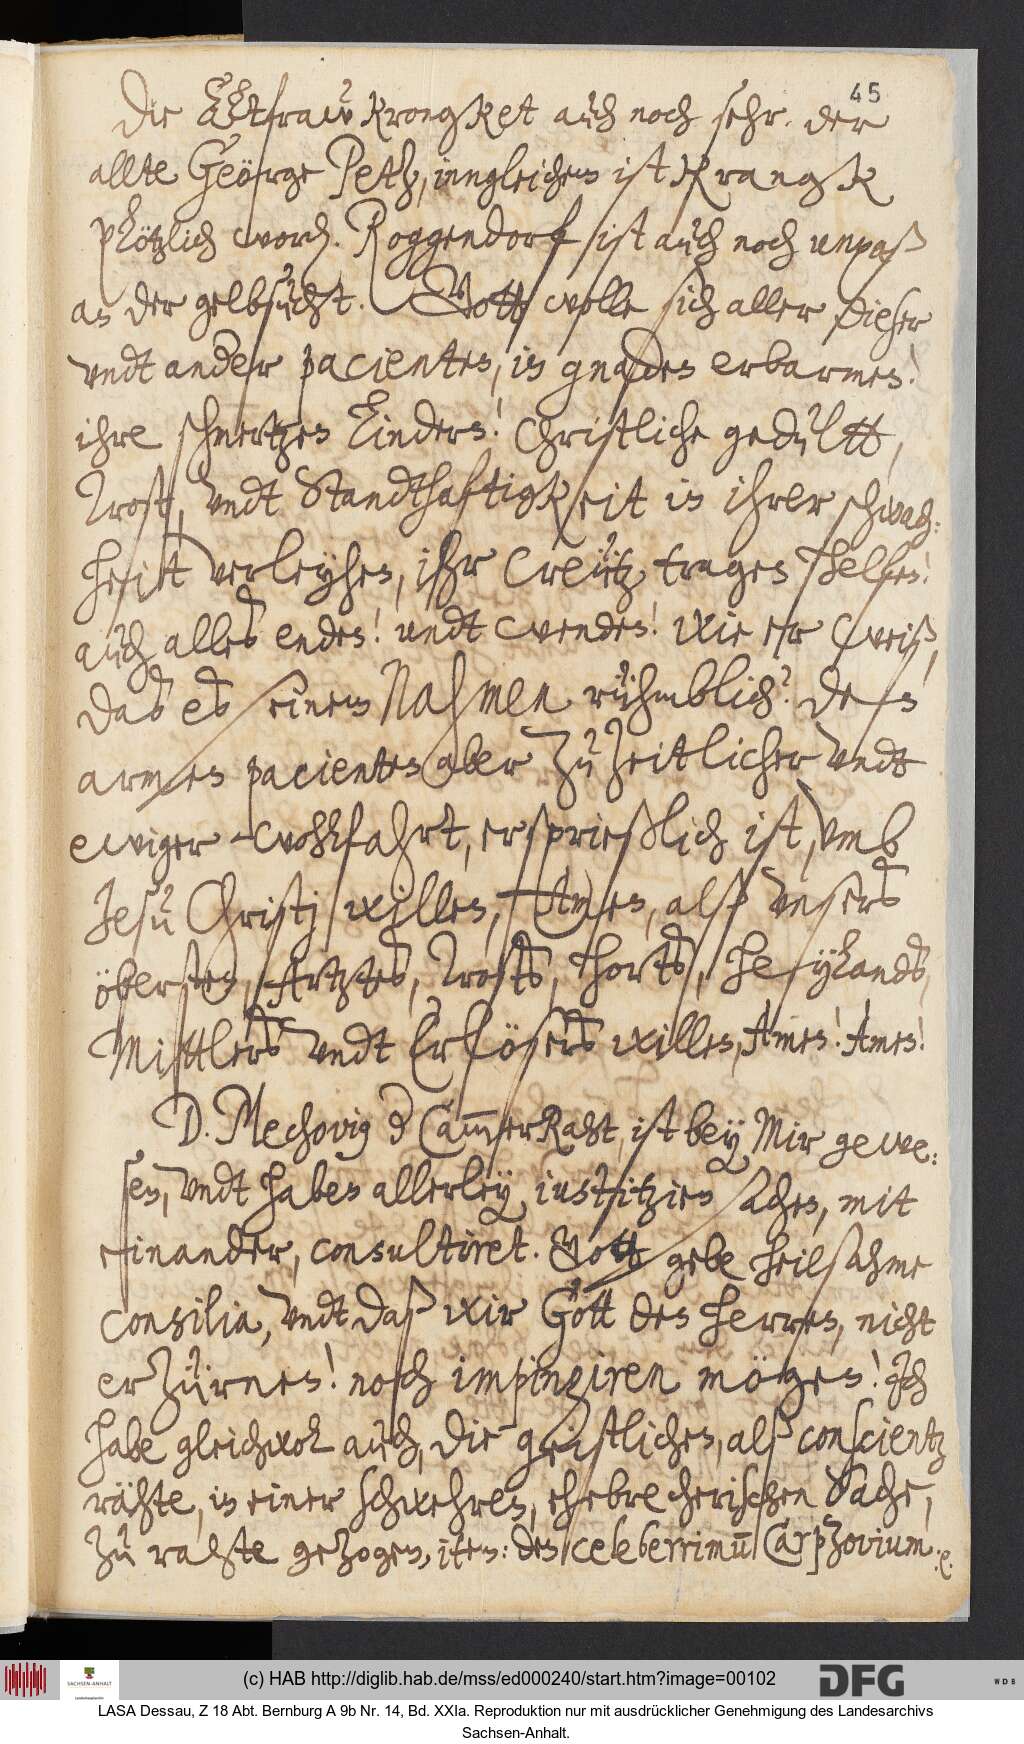 45
Die Altfraw krongket auch noch sehr. der
allte Geörge Peth, inngleichen ist Krangk
plötzlich word. Roggendorf ist auch noch unpaß
an der gelbsucht. Gott wolle sich aller dieser
undt ander pacienten, in gnaden erbarmen!
ihre schmertzen lindern! Christliche gedultt,
Trost, undt Standthaftigkeit in ihrer schwach:
heitt verleyhen, ihr Creütz tragen helfen!
auch alles enden! undt wenden! wie er weiß,
das es seinem Nahmen rühmblich? den
armen pacienten aber zu zeitlicher undt
ewiger wohlfahrt, ersprießlich ist, umb
Jesu Christj willen, Amen, alß unsers
öbersten Artztes, Trosts, horts, heylands,
Mittlers undt Erlösers willen, Amen! Amen!
D. Mechovig der CammerRaht, ist bey Mir gewe:
sen, undt haben allerley iustitzien sachen, mit
einander, consultiret. Gott gebe heilsahme
consilia, undt daß wir Gott den herren, nicht
erzürnen! noch impingiren mögen! Ich
habe gleichwol auch, die geistlichen, als conscientz
rähte, in einer schwehren, ehebrecherischen Sache,
zu rahte gezogen, item: den celeberrimum Carpzovium. e.
(c) HAB http://diglib.hab.de/mss/ed000240/start.htm?image=00102
SACHSEN-ANHALT
DFG
WDB
LASA Dessau, Z 18 Abt. Bernburg A 9b Nr. 14, Bd. XXIa. Reproduktion nur mit ausdrücklicher Genehmigung des Landesarchivs
Sachsen-Anhalt.